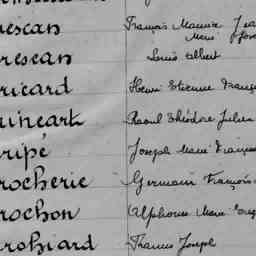 escan François Maurice
Marie
rescan Louis Albert
ricard Henri Etienne
uineart Raoul Théodore Jules
ripé Joseph Marie François
rocherie Germain François
rochon Alphonse Marie
rohiard Francis Joseph